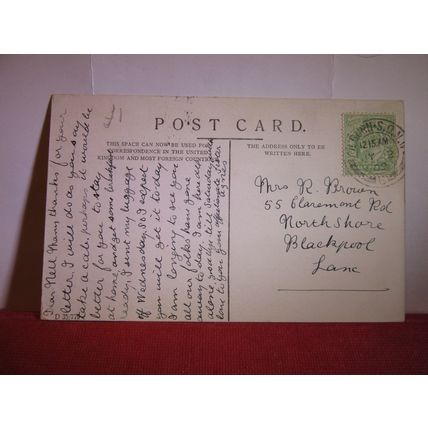 POST CARD.
THIS SPACE CAN NOW BE USED FOR
CORRESPONDENCE IN THE UNITED
KINGDOM AND MOST FOREIGN COUNTRIES
THE ADDRESS ONLY TO BE
WRITTEN HERE.
12.15 AM
Dear Nell Many thanks for your
letter. I will do as you say
take a cab, perhaps it would be
better for you to stay
at home and get some breakfast
ready. I sent my luggage
off Wednesday, so I expect
you will get it today.
I am longing to see you
all our folks have gone
away to day. I am here
alone till Saturday
love to your affectionate Sister
Mrs R. Brown
55 Claremont Rd
North Shore
Blackpool
Lanc